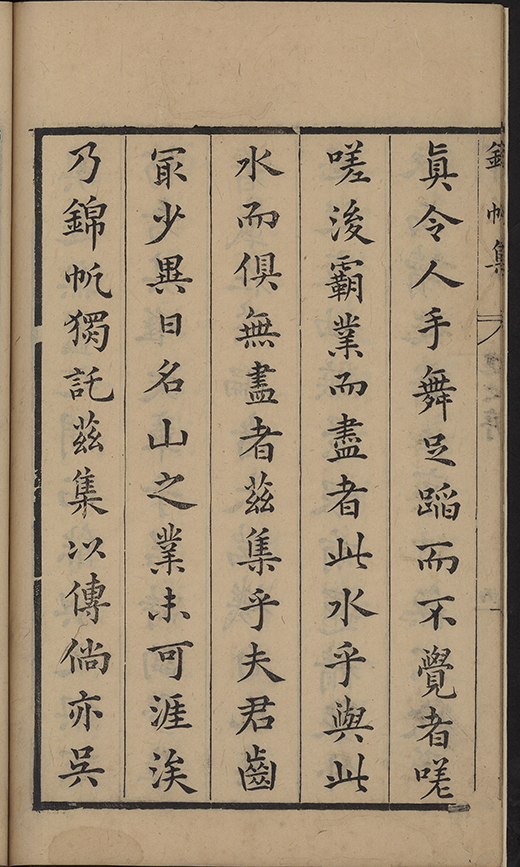 錦帆集
真令人手舞足蹈而不覺者嗟
嗟後霸業而盡者此水乎與此
水而俱無盡者茲集乎夫君齒
㝡少異日名山之業未可涯涘
乃錦帆獨託茲集以傳倘亦吳